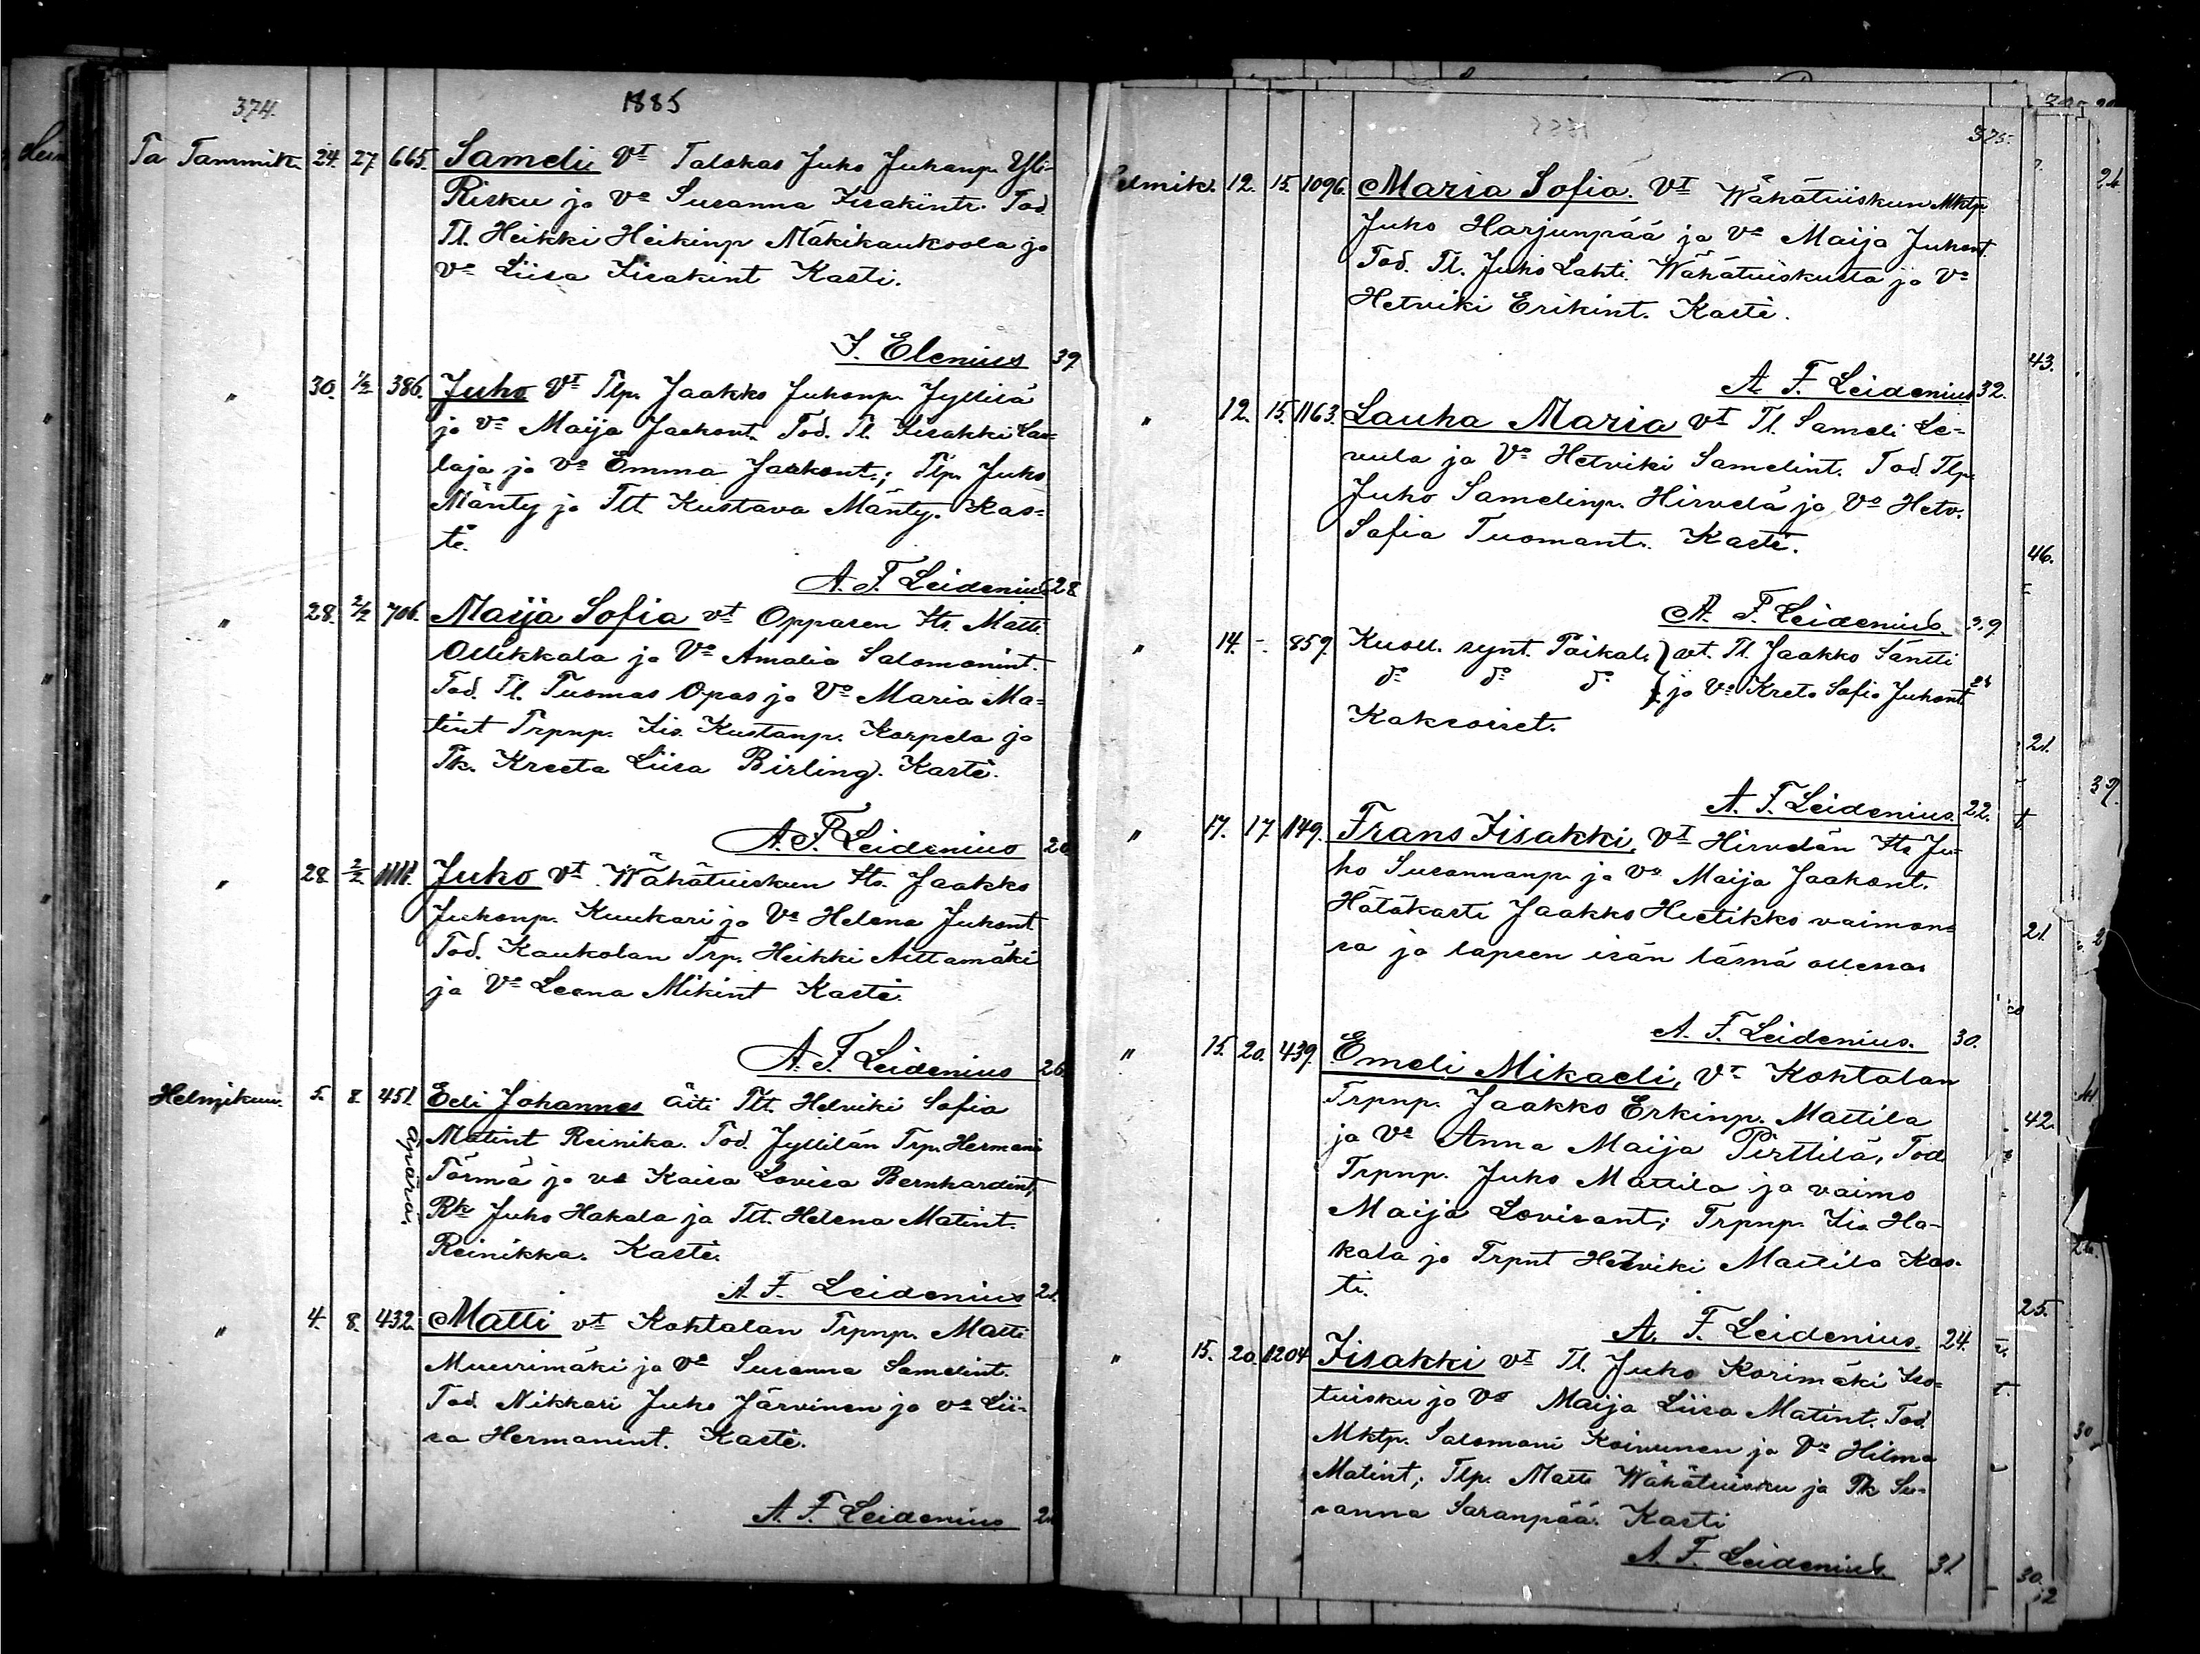 374.
1885
Tammik. 24. 27. 665. Sameli Vt Talokas Juho Juhanp. Yli-
Risku ja Vo Susanna Iisakintr. Tod.
Tl. Heikki Heikinp Mäkikaukoola ja
Vo Liisa Iisakint Kasti.
I. Elenius 39
" 30. 1/2 386. Juho Vt Tlp. Jaakko Juhonp. Jyllilä
ja Vo Maija Jaakont. Tod. Tl. Iisakki
laja ja Vo Emma Jaakont.; Tlp. Juho
Mänty ja Tlt Kustava Mänty. Kas-
ti.
A. F. Leidenius 28
" 28. 2/2 706. Maija Sofia vt Oppasen Its. Matti
Ollikkala ja Vo Amalia Salomonint.
Tod. Tl. Tuomas Opas ja Vo Maria Ma-
tint Trpnp. Iis. Kustanp. Korpela ja
Tk. Kreeta Liisa Birling. Kasti.
A. F. Leidenius
" 28 2/2 1111. Juho Vt Wähätuiskun Its. Jaakko
Juhonp. Kuukari ja Vo Helena Juhont
Tod. Kaukolan Trp. Heikki Aittamäki
ja Vo Leena Mikint Kasti.
A. F. Leidenius 26.
Helmikuu. 5. 8. 451. Eeli Johannes äiti Tlt. Helviki Sofia
äpärä.
Matint Reinika. Tod. Jyllilän Trp. Hermani
Törmä ja vo Kaisa Lovisa Bernhardint,
Rk Juho Hakala ja Tlt. Helena Matint.
Reinikka. Kasti.
A. F. Leidenius 21.
" 4. 8. 432. Matti vt Kohtalan Trpnp. Matti
Muurimäki ja Vo Susanna Samelint.
Tod. Nikkari Juho Järvinen ja vo Lii-
sa Hermanint. Kasti.
A. F. Leidenius
375.
Helmik. 12. 15. 1096. Maria Sofia. Vt Wähätuiskun Mktp.
Juho Harjunpää ja Vo Maija Juhont.
Tod. Tl. Juho Lahti Wähätuiskulta ja Vo
Hetviki Erikint. Kasti.
A. F. Leidenius 32.
" 12. 15. 1163. Lauha Maria vt Tl. Sameli Le-
vula ja Vo Hetviki Samelint. Tod Tlp.
Juho Samelinp. Hirvelä ja Vo Hetv.
Sofia Tuomant. Kasti.
A. F. Leidenius. 39.
" 14. - 859. Kuoll. synt. Poikal. } vt. Tl. Jaakko Säntti
do do do } ja Vo Kreta Sofia Juhont
Kaksoiset.
A. F. Leidenius. 22.
" 17. 17. 1149. Frans Iisakki, Vt Hirvelän Its Ju-
ho Susannanp. ja Vo Maija Jaakont.
Hätäkasti Jaakko Huttikko vaimon-
sa ja lapsen isän läsnä ollessa.
A. F. Leidenius. 30.
" 15. 20. 439. Emeli Mikaeli, Vt Kohtalan
Trpnp. Jaakko Erkinp. Mattila
ja Vo Anna Maija Pirttilä, Tod.
Trpnp. Juho Mattila ja vaimo
Maija Lovisant; Trpnp. Iis. Ha-
kala ja Trpnt Hetviki Mattila Kas-
ti.
A. F. Leidenius. 24.
" 15. 20. 1204 Iisakki vt Tl. Juho Korimäki Iso-
tuisku ja Vo Maija Liisa Matint. Tod.
Mktp. Salomoni Koivunen ja Vo Hilma
Matint; Tlp. Matti Wähätuisku ja Tk Su-
sanna Saranpää. Kasti
A. F. Leidenius. 31